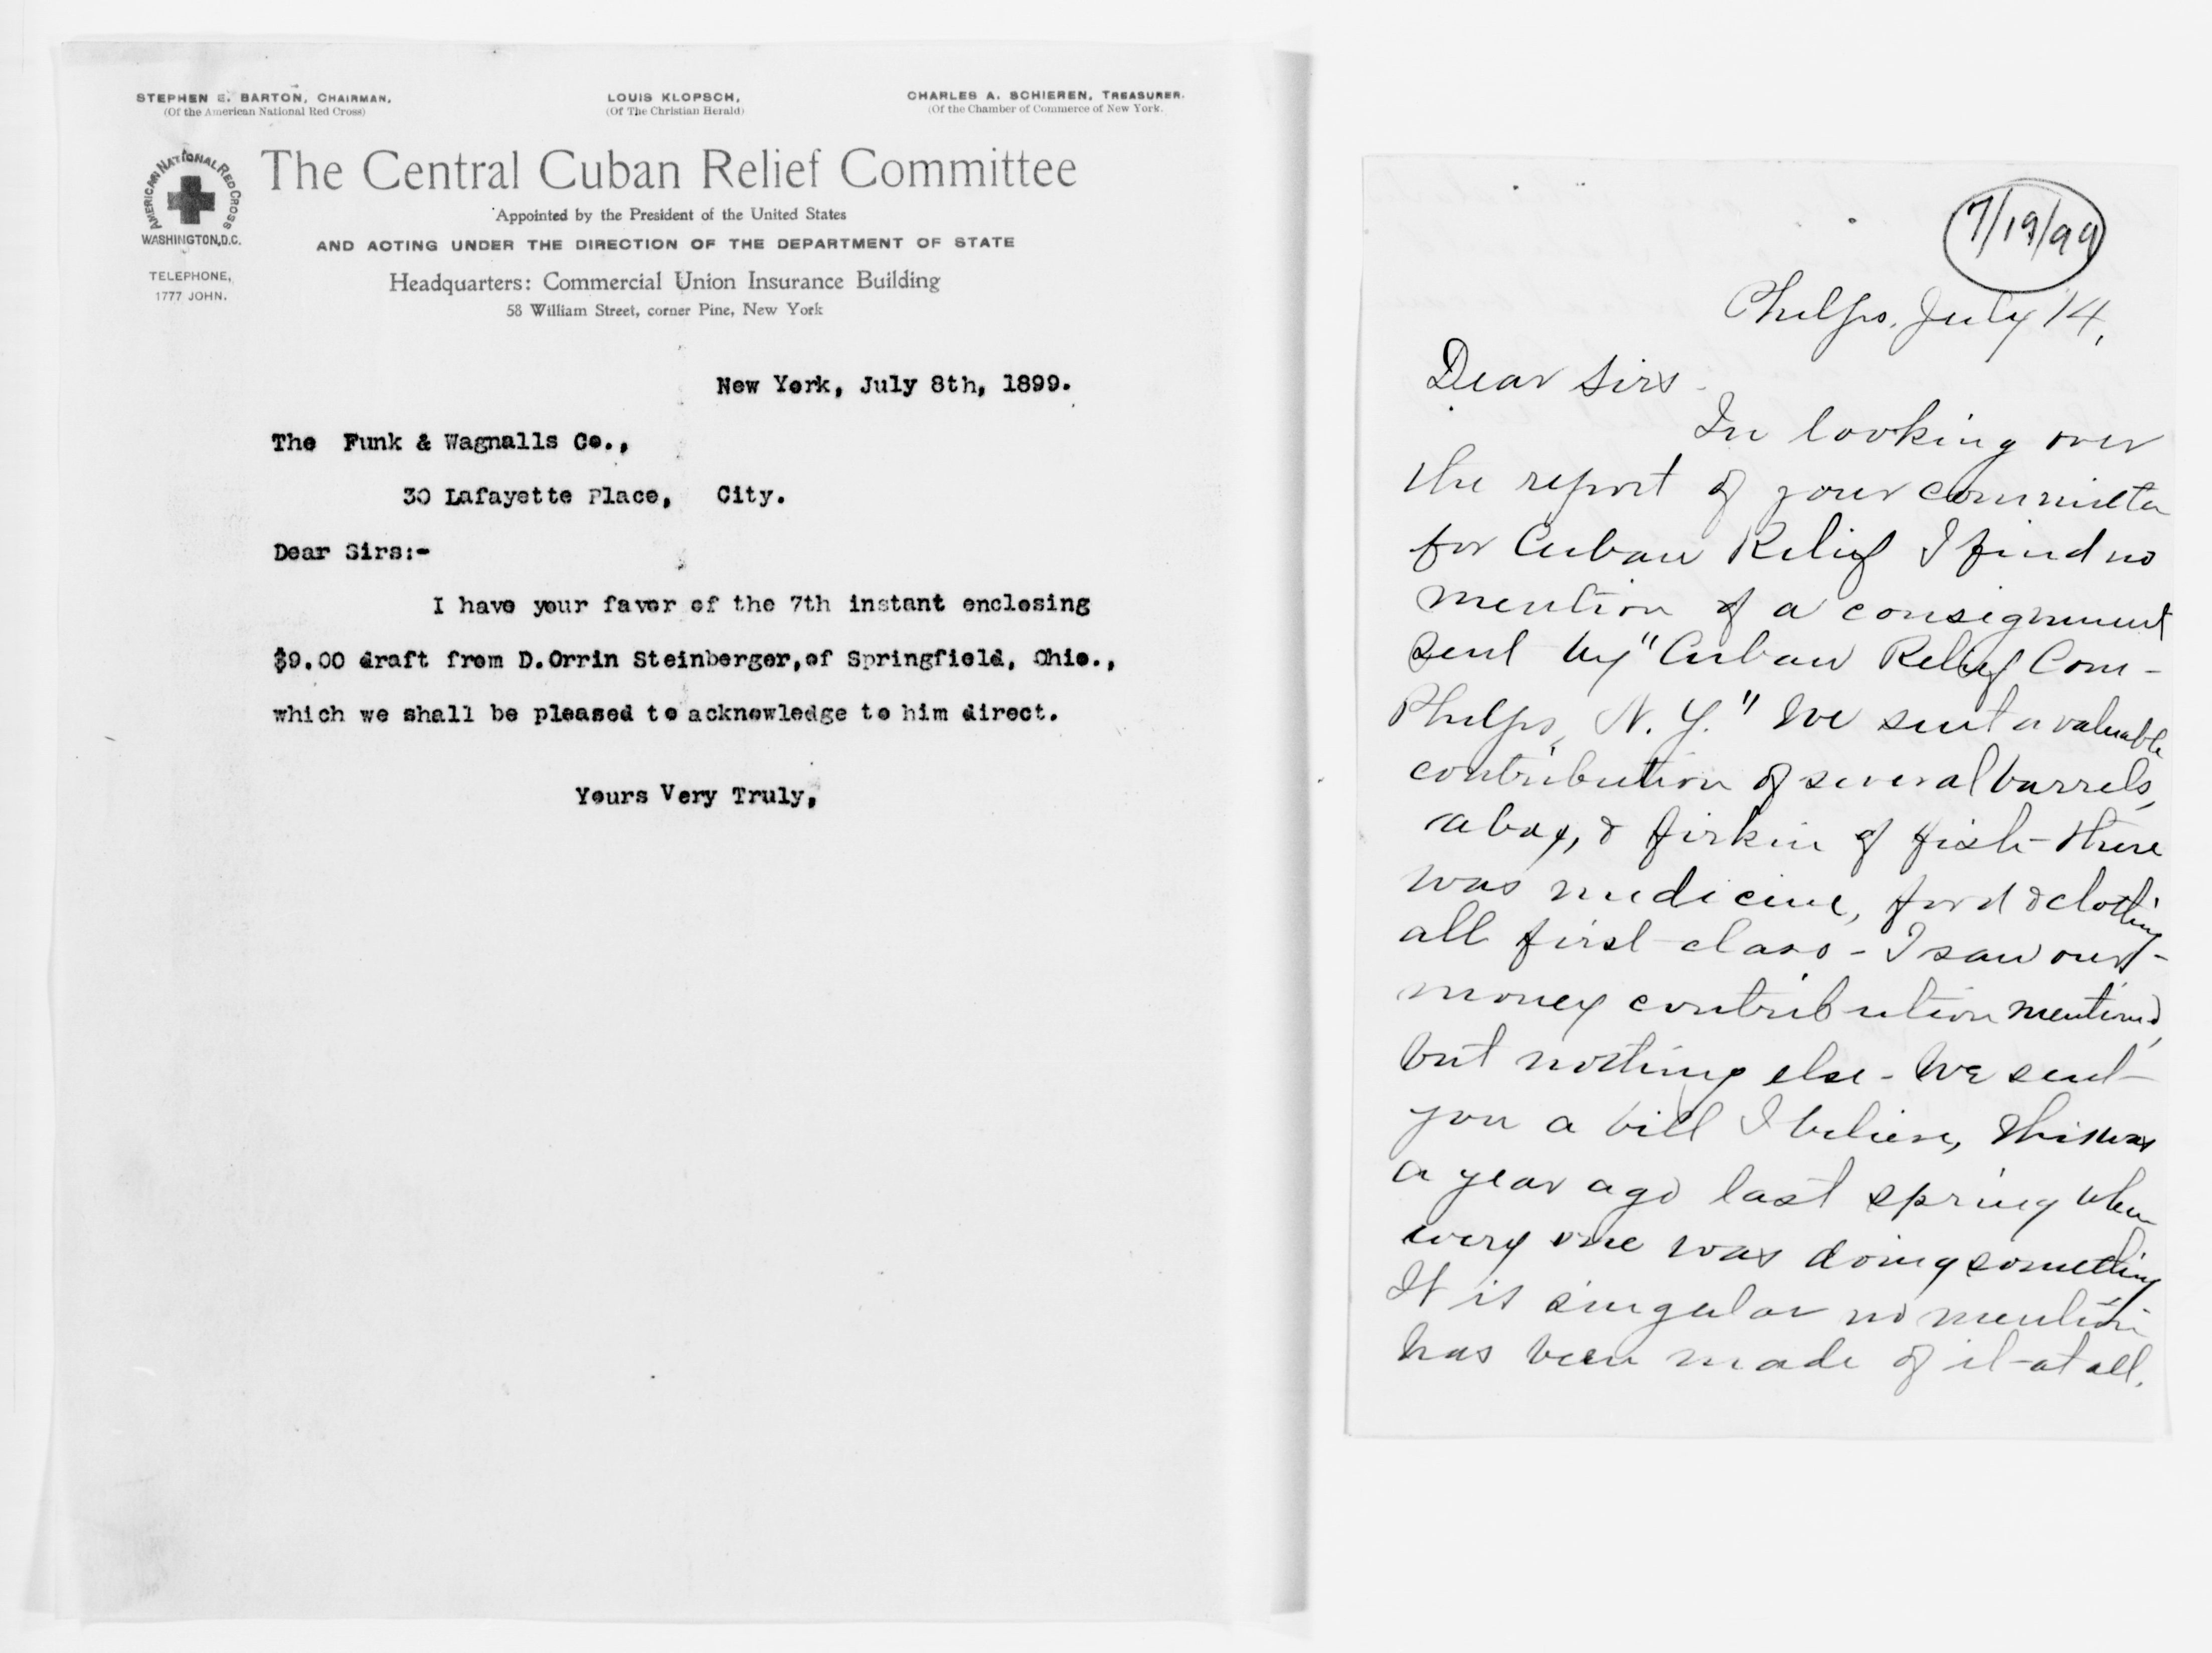 STEPHEN E. BARTON, CHAIRMAN,
(Of the American National Red Cross)
LOUIS KLOPSCH,
(Of The Christian Herald)
CHARLES A. SCHIEREN, TREASURER.
(Of the Chamber of Commerce of New York.
AMERICAN NATIONAL RED CROSS
WASHINGTON, D.C.
TELEPHONE,
1777 JOHN.
The Central Cuban Relief Committee
Appointed by the President of the United States
AND ACTING UNDER THE DIRECTION OF THE DEPARTMENT OF STATE
Headquarters: Commercial Union Insurance Building
58 William Street, corner Pine, New York
New York, July 8th, 1899.
The Funk & Wagnalls Co.,
30 Lafayette Place, City.
Dear Sirs:-
I have your favor of the 7th instant enclosing
$9.00 draft from D.Orrin Steinberger,of Springfield, Ohio.,
which we shall be pleased to acknowledge to him direct.
Yours Very Truly,
7/19/99
Phelps, July 14,
Dear Sirs -
In looking over
the report of your committee
for Cuban Relief I find no
mention of a consignment
sent by "Cuban Relief Com-
Phelps, N. Y." We sent a valuable
contribution of several barrels,
a box, & firkin of fish - there
was medicine, food & clothing
all first class - I saw our
money contribution mentioned,
but nothing else - We sent
you a bill I believe, this was
a year ago last spring when
every one was doing something
It is singular no mention
has been made of it at all.